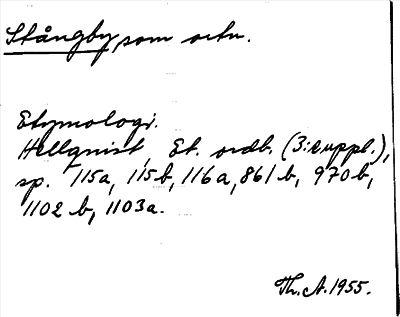 Stångby som ortn.
Etymologi.
Hellquist, Et. ordb. (3:e uppl.),
sp. 115a, 115b, 116a, 861b, 970b,
1102b, 1103a.
Th. A. 1955.